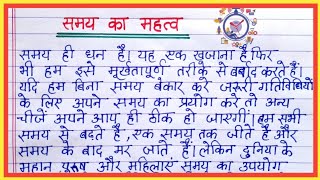 समय का महत्व
समय ही धन है। यह एक खजाना है फिर
भी हम इसे मूर्खतापूर्ण तरीके से बर्बाद करते हैं।
यदि हम बिना समय बेकार करे जरूरी गतिविधियों
के लिए अपने समय का प्रयोग करे तो अन्य
चीजें अपने आप ही ठीक हो जाएगीं। हम सभी
समय से बढते है, एक समय तक जीते है और
समय के बाद मर जाते हैं। लेकिन दुनिया के
महान पुरूष और महिलाएं समय का उपयोग